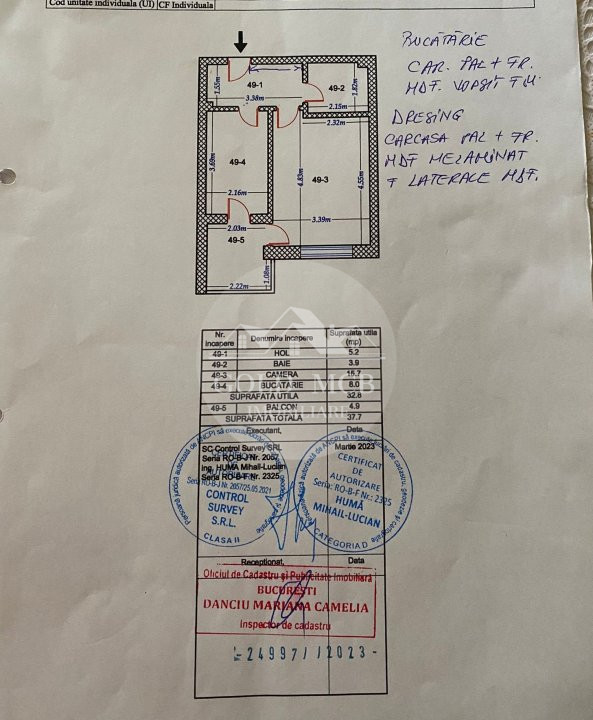 Cod unitate individuala (UI) CF Individuala
BUCĂTĂRIE
CAR. PAL + FR.
MDF. VOPSIT
DRESING
CARCASA PAL + FR.
MDF MELAMINAT
LATERALE MDF.
49-1
1.55m
3.38m
49-2
1.82m
2.15m
2.32m
49-4
3.69m
2.16m
49-3
4.83m
4.55m
3.39m
2.03m
49-5
1.08m
2.22m
Nr. incapere Denumire incapere Suprafata utila (mp)
49-1 HOL 5.2
49-2 BAIE 3.9
49-3 CAMERA 15.7
49-4 BUCATARIE 8.0
SUPRAFATA UTILA 32.8
49-5 BALCON 4.9
SUPRAFATA TOTALA 37.7
GOLD MCB
IMOBILIARE
Executant, Data
SC Control Survey SRL Martie 2023
Seria RO-B-J Nr. 2057
Ing. HUMĂ Mihail-Lucian
Seria RO-B-F Nr. 2325
Seria RO-B-J Nr. 2057/25.05.2021
CONTROL
SURVEY
S.R.L.
CLASA II
CERTIFICAT
DE
AUTORIZARE
Seria: RO-B-F Nr.: 2325
HUMĂ
MIHAIL-LUCIAN
CATEGORIA D
Receptionat, Data
Oficiul de Cadastru şi Publicitate Imobiliară
BUCUREŞTI
DANCIU MARIANA CAMELIA
Inspector de cadastru
24997//2023-